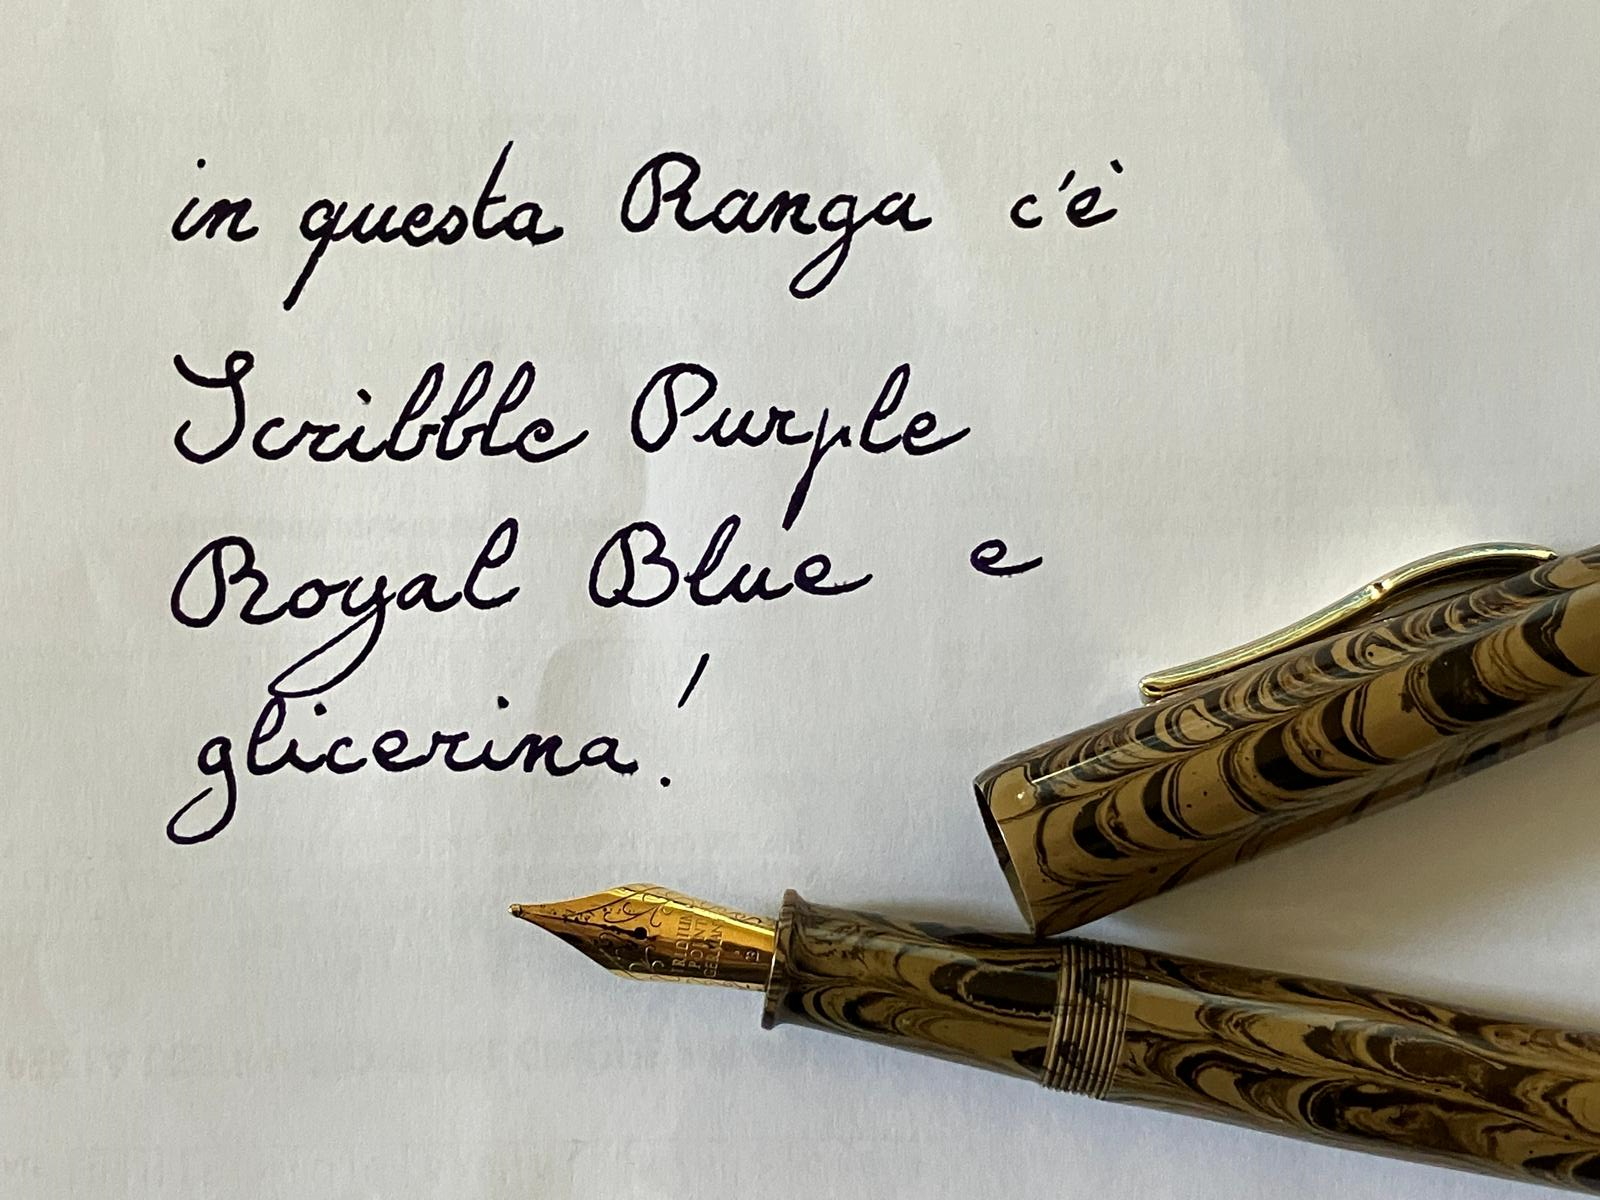 in questa Ranga c'è
Scribble Purple
Royal Blue e
glicerina!
IRIDIUM
POINT
GERMANY